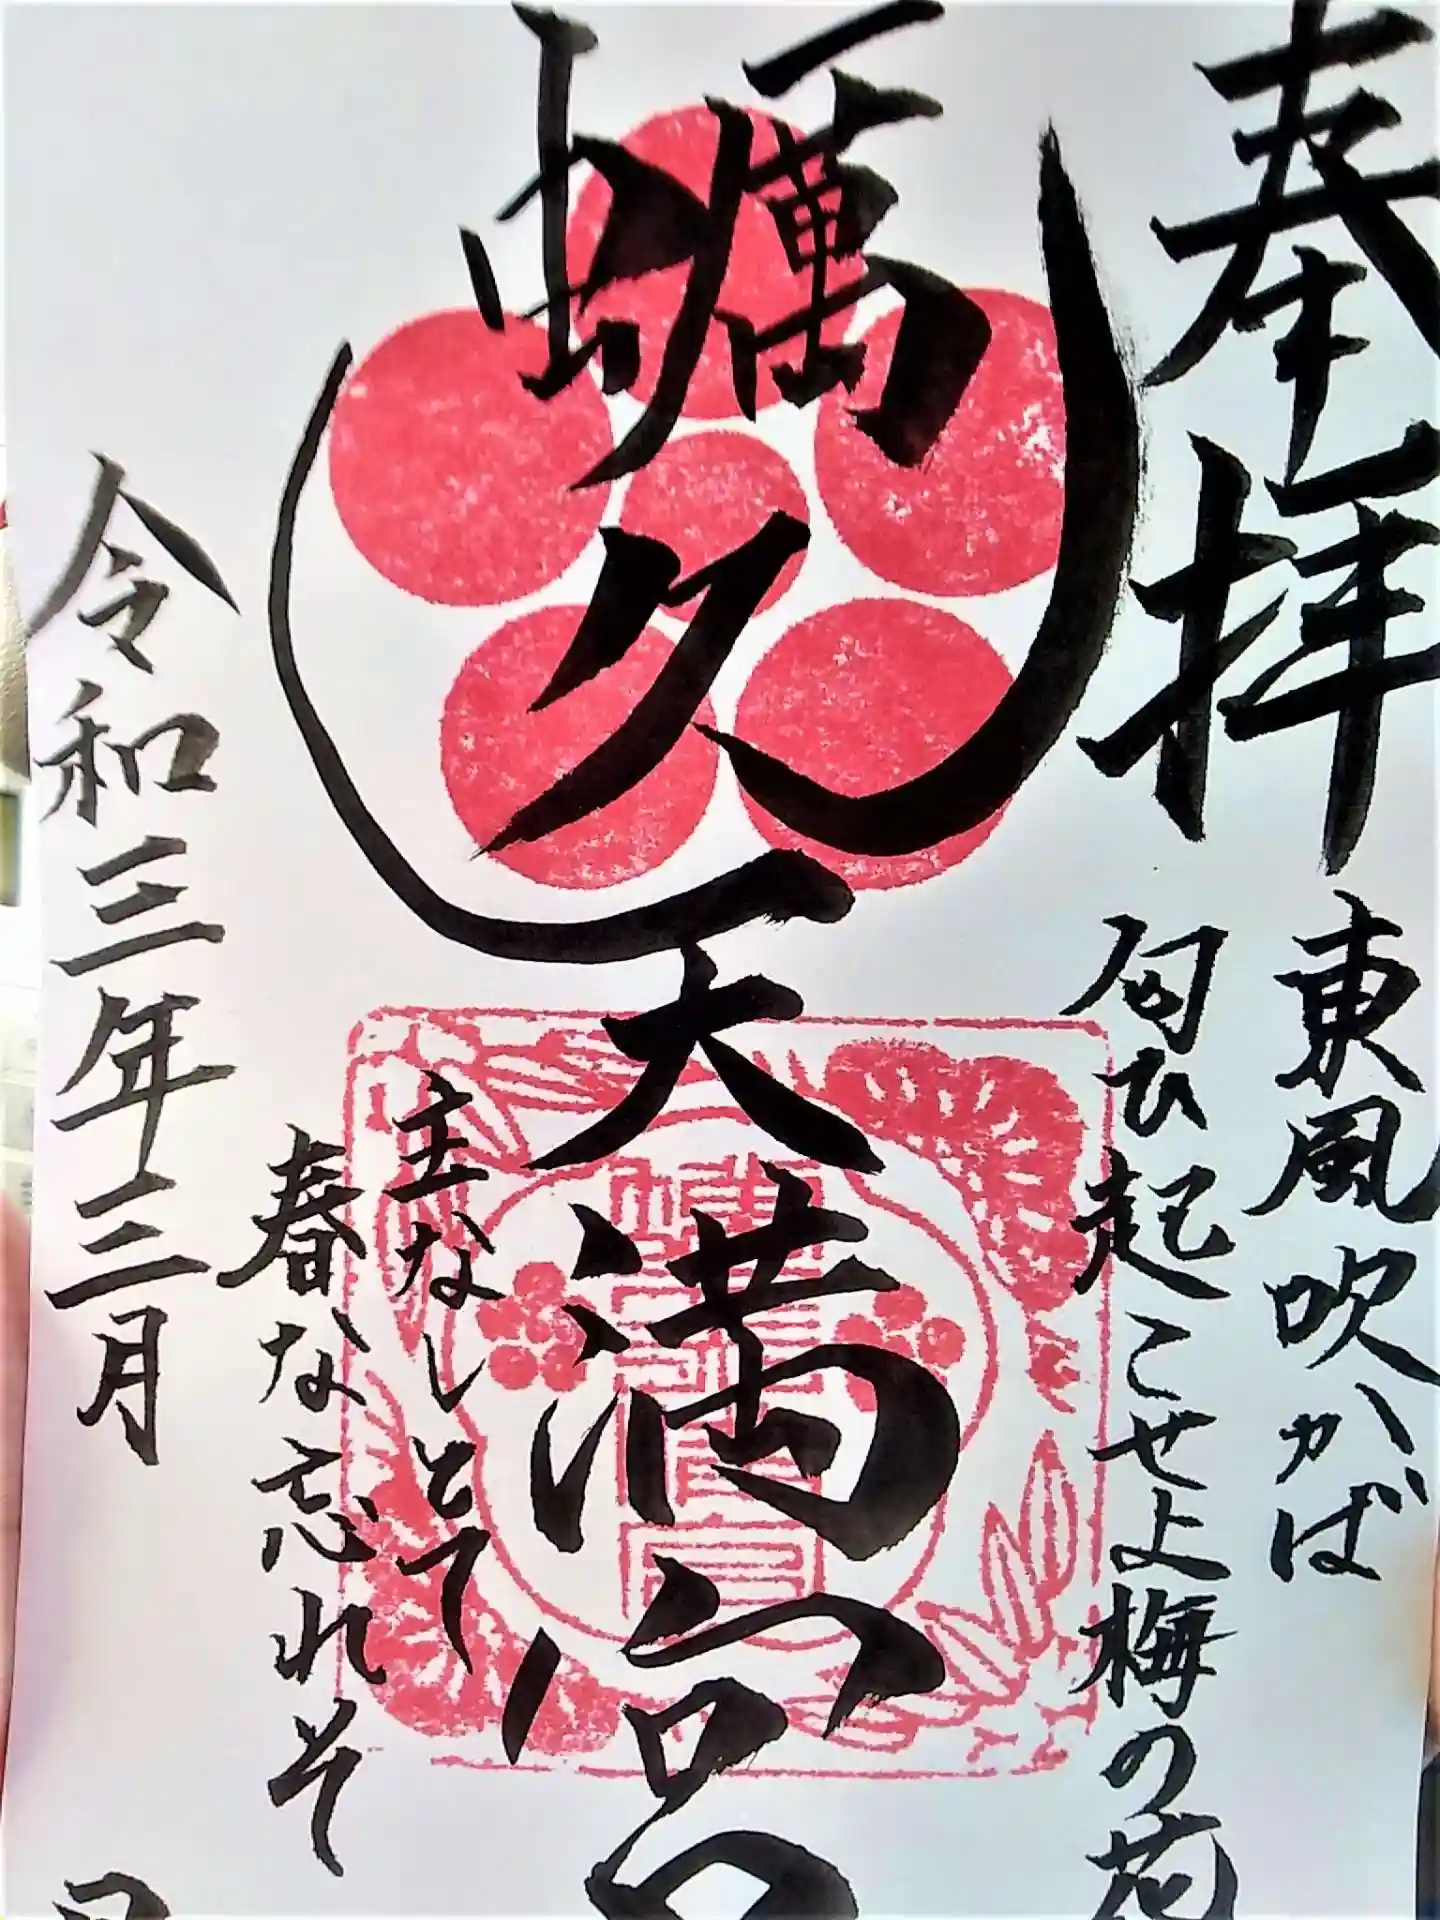 奉拝
東風吹かば
匂ひ起こせよ梅の花
蠣久天満宮
主なしとて
春な忘れそ
令和三年三月
日